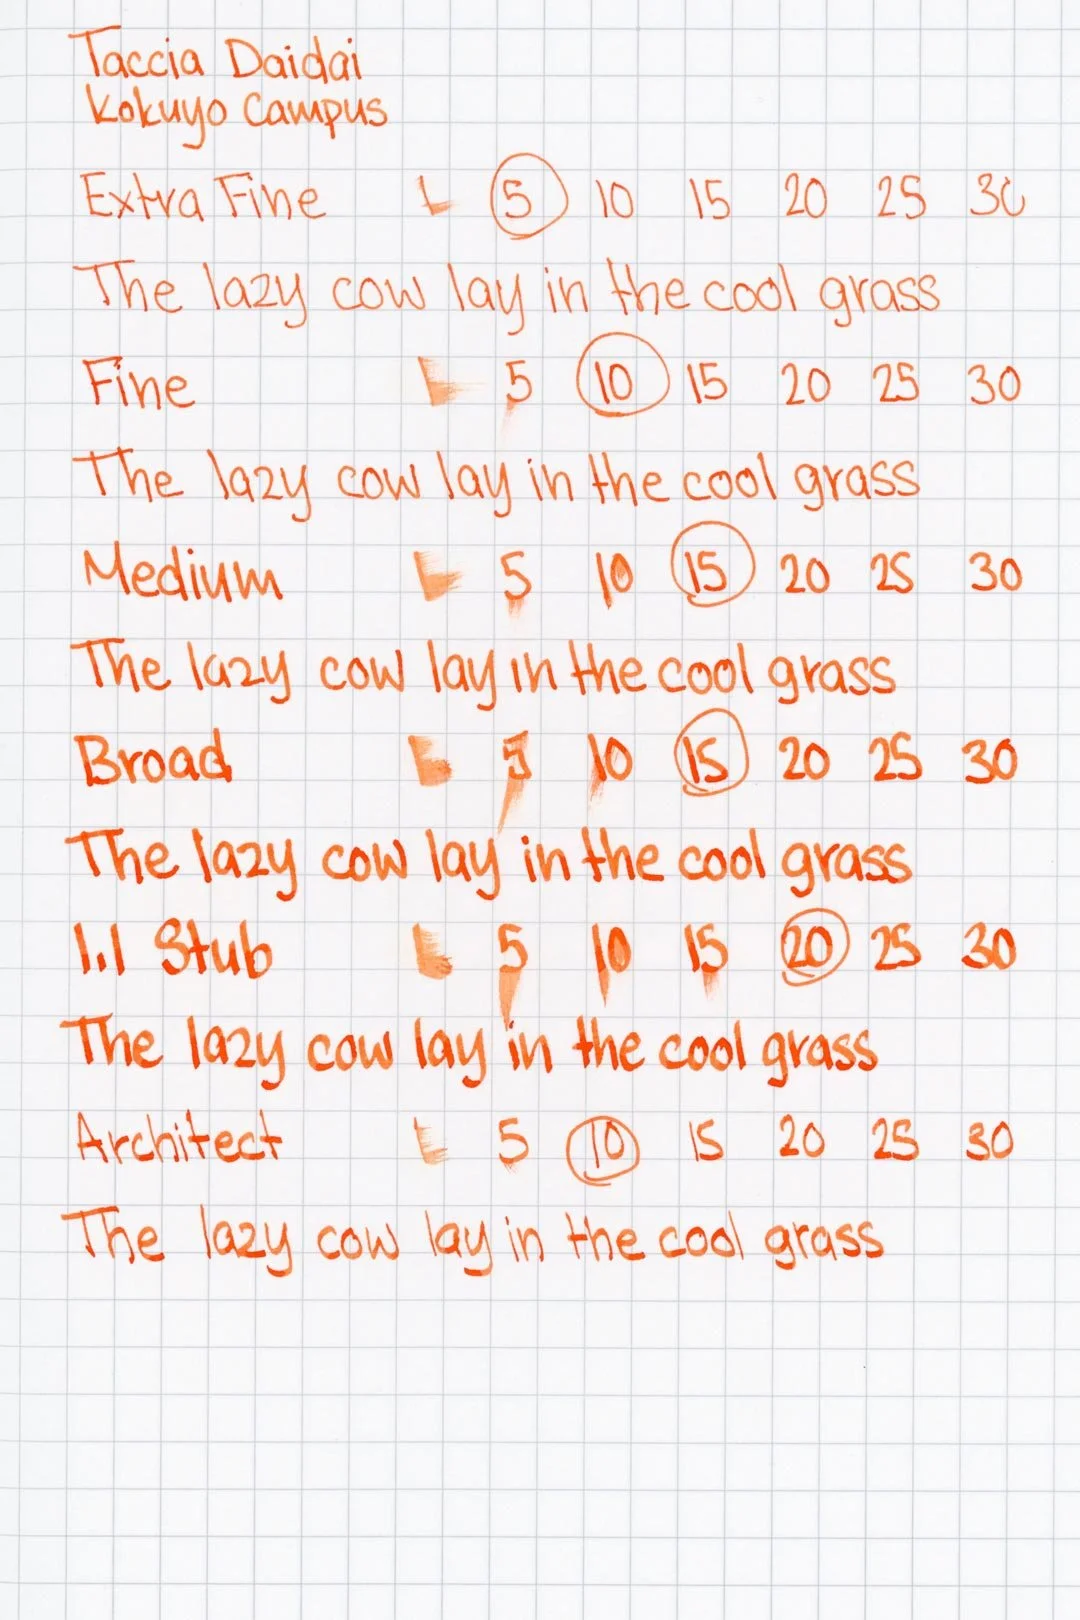 Taccia Daidai
Kokuyo Campus
Extra Fine L 5 10 15 20 25 30
The lazy cow lay in the cool grass
Fine L 5 10 15 20 25 30
The lazy cow lay in the cool grass
Medium L 5 10 15 20 25 30
The lazy cow lay in the cool grass
Broad L 5 10 15 20 25 30
The lazy cow lay in the cool grass
1.1 Stub L 5 10 15 20 25 30
The lazy cow lay in the cool grass
Architect L 5 10 15 20 25 30
The lazy cow lay in the cool grass